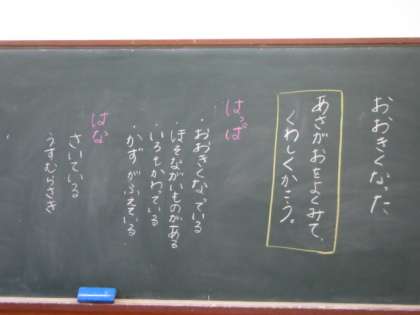 おおきくなった
あさがおをよくみて、
くわしくかこう。
はっぱ
・おおきくなっている
・ほそながいものがある
・いろもかわっている
・かずがふえている
はな
さいている
うすむらさき